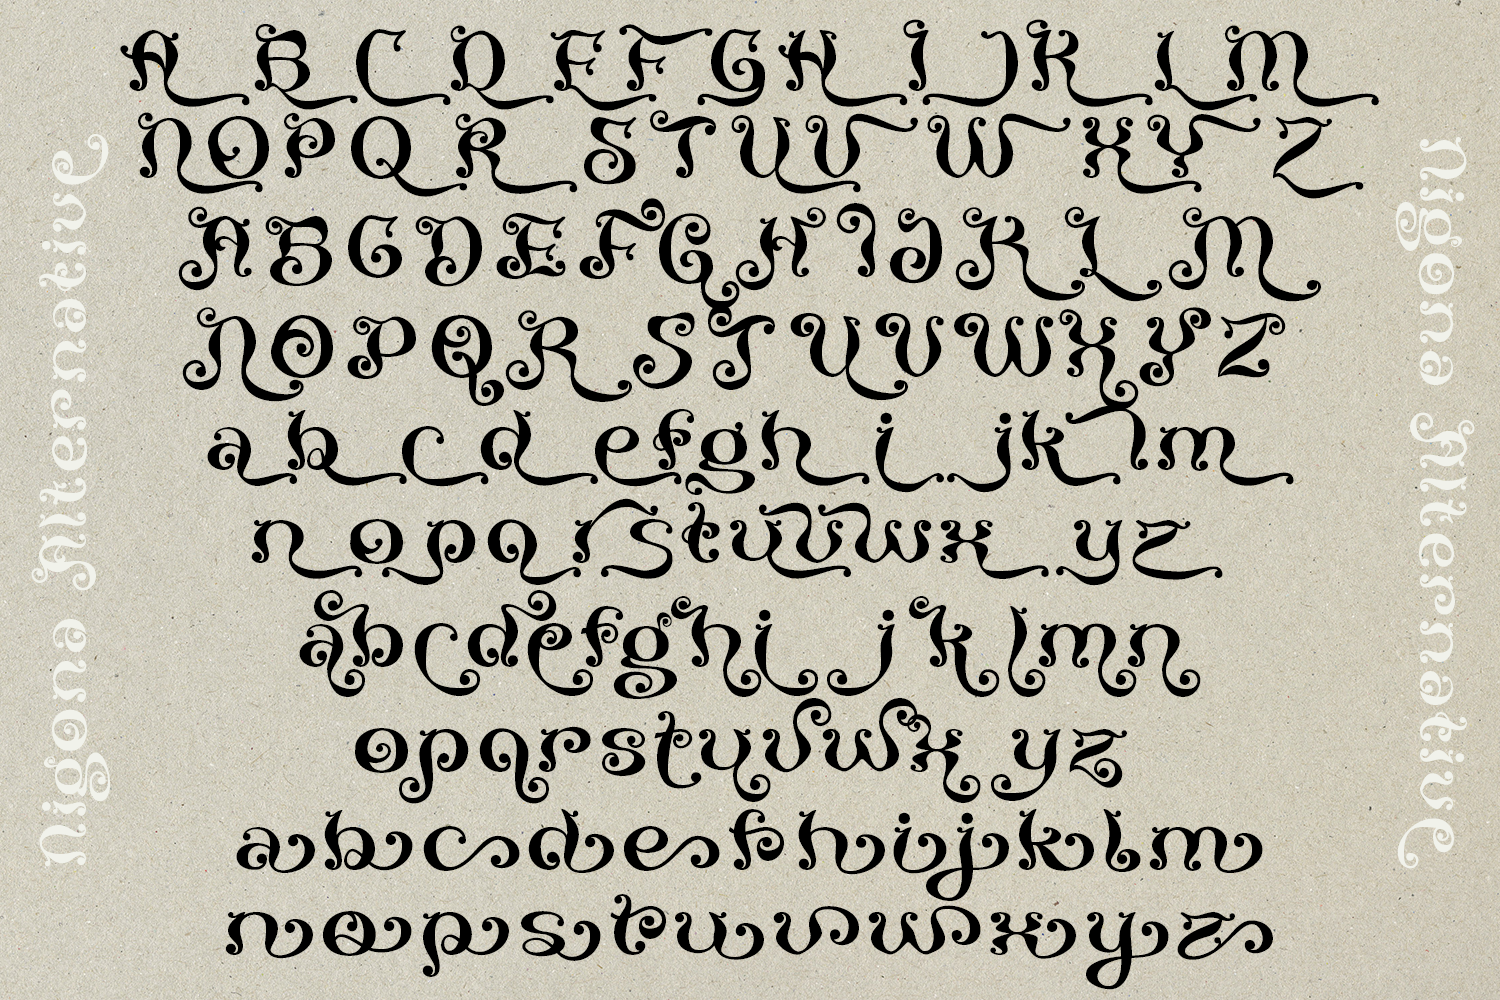 A B C D E F G H I J K L M
N O P Q R S T U V W X Y Z
A B C D E F G H I J K L M
N O P Q R S T U V W X Y Z
a b c d e f g h i j k l m
n o p q r s t u v w x y z
a b c d e f g h i j k l m n
o p q r s t u v w x y z
a b c d e f h i j k l m
n o p s t u v w x y z
Nigona Alternative
Nigona Alternative